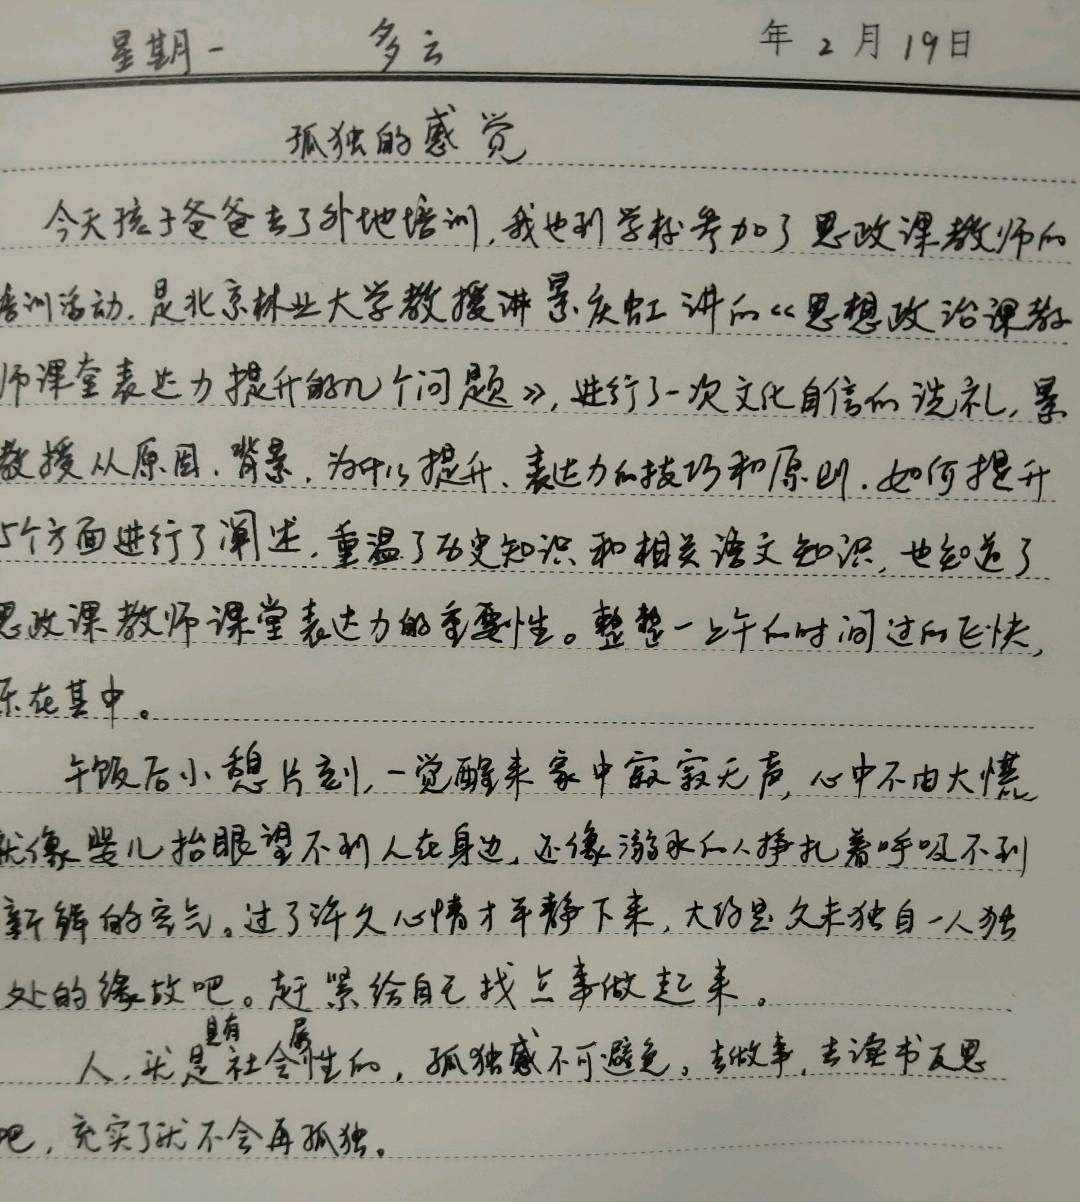 星期一 多云 年2月19日
孤独的感觉
今天孩子爸爸去了外地培训,我也到学校参加了思政课教师的
培训活动.是北京林业大学教授讲景庆虹讲的《思想政治课教
师课堂表达力提升的几个问题》,进行了一次文化自信的洗礼,景
教授从原因、背景、为什么提升、表达力的技巧和原则、如何提升
5个方面进行了阐述,重温了历史知识和相关语文知识,也知道了
思政课教师课堂表达力的重要性。整整一上午的时间过的飞快,
乐在其中。
午饭后小憩片刻,一觉醒来家中寂寂无声,心中不由大慌
就像婴儿抬眼望不到人在身边,还像溺水的人挣扎着呼吸不到
新鲜的空气。过了许久心情才平静下来,大约是久未独自一人独
处的缘故吧。赶紧给自己找点事做起来。
人,就是具有社会属性的,孤独感不可避免,去做事,去读书反思
吧,充实了就不会再孤独。